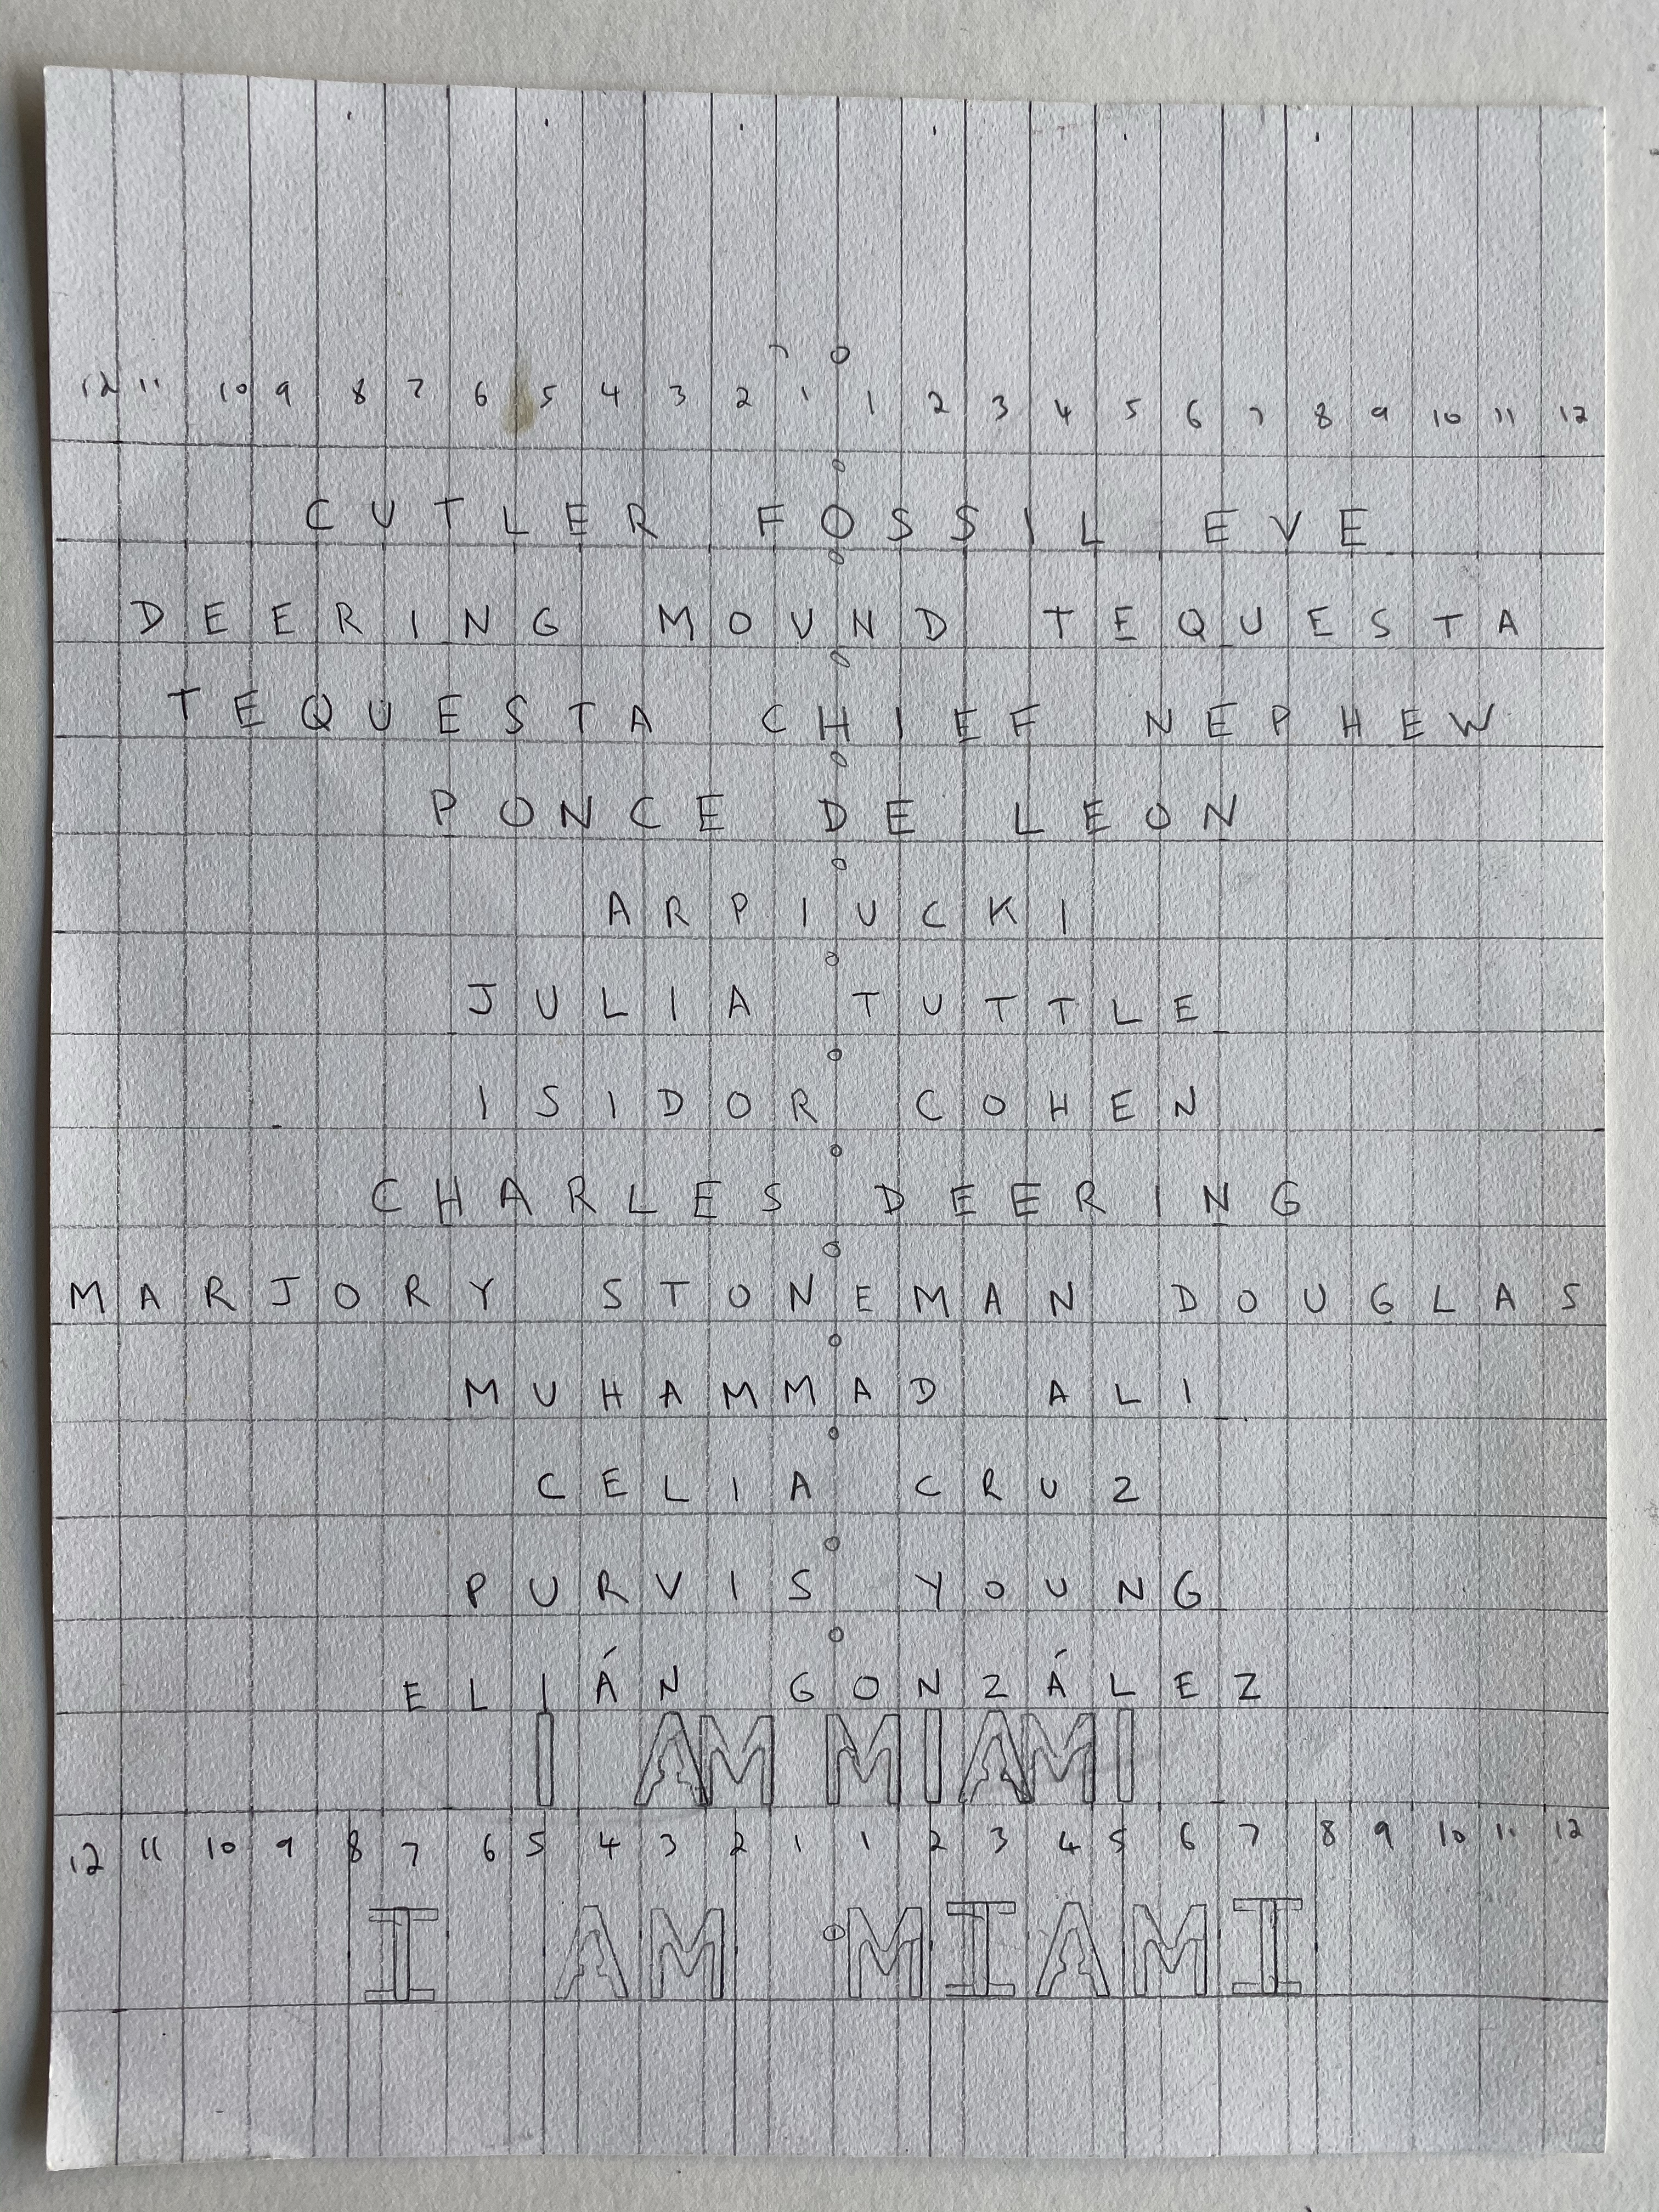 0
12 11 10 9 8 7 6 5 4 3 2 1 1 2 3 4 5 6 7 8 9 10 11 12
CUTLER FOSSIL EVE
DEERING MOUND TEQUESTA
TEQUESTA CHIEF NEPHEW
PONCE DE LEON
ARPIUCKI
JULIA TUTTLE
ISIDOR COHEN
CHARLES DEERING
MARJORY STONEMAN DOUGLAS
MUHAMMAD ALI
CELIA CRUZ
PURVIS YOUNG
ELIÁN GONZÁLEZ
I AM MIAMI
12 11 10 9 8 7 6 5 4 3 2 1 1 2 3 4 5 6 7 8 9 10 11 12
I AM MIAMI